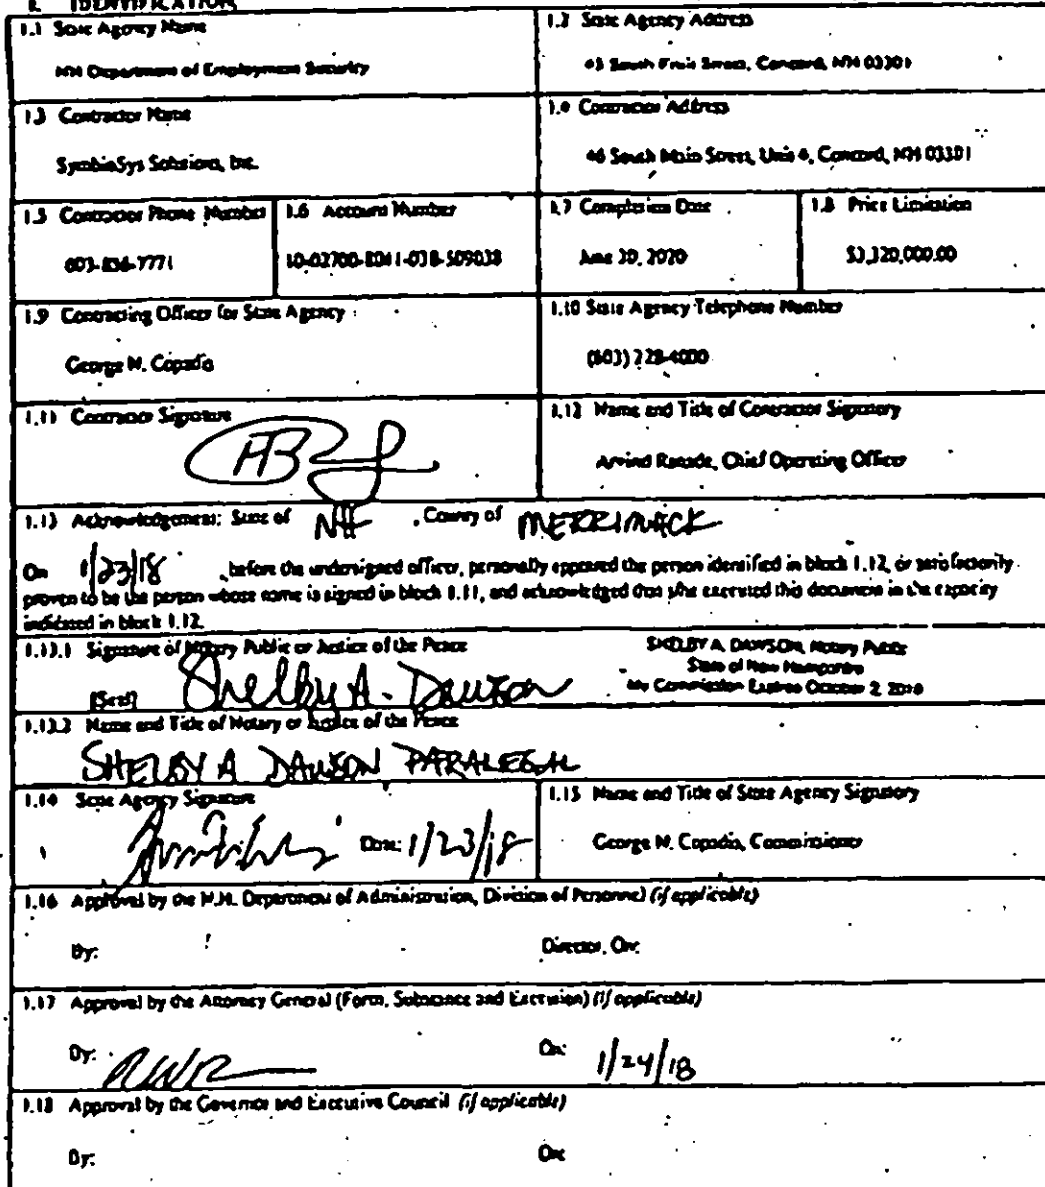 1. IDENTIFICATION
1.1 State Agency Name
1.2 State Agency Address
NH Department of Employment Security
45 South Fruit Street, Concord, NH 03301
1.3 Contractor Name
1.4 Contractor Address
SymbioSys Solutions, Inc.
46 South Main Street, Unit 4, Concord, NH 03301
1.5 Contractor Phone Number
1.6 Account Number
1.7 Completion Date
1.8 Price Limitation
603-836-7771
10-02700-8041-038-509038
June 30, 2020
$3,320,000.00
1.9 Contracting Officer for State Agency
1.10 State Agency Telephone Number
George N. Copadis
(603) 228-4000
1.11 Contractor Signature
1.12 Name and Title of Contractor Signatory
Arvind Ranade, Chief Operating Officer
1.13 Acknowledgement: State of NH , County of MERRIMACK
On 1/23/18 , before the undersigned officer, personally appeared the person identified in block 1.12, or satisfactorily
proven to be the person whose name is signed in block 1.11, and acknowledged that s/he executed this document in the capacity
indicated in block 1.12.
1.13.1 Signature of Notary Public or Justice of the Peace
SHELBY A. DAWSON, Notary Public
State of New Hampshire
My Commission Expires October 2, 2018
[Seal] Shelby A. Dawson
1.13.2 Name and Title of Notary or Justice of the Peace
SHELBY A DAWSON PARALEGAL
1.14 State Agency Signature
1.15 Name and Title of State Agency Signatory
Date: 1/23/18
George N. Copadis, Commissioner
1.16 Approval by the N.H. Department of Administration, Division of Personnel (if applicable)
By:
Director, On:
1.17 Approval by the Attorney General (Form, Substance and Execution) (if applicable)
By:
On: 1/24/18
1.18 Approval by the Governor and Executive Council (if applicable)
By:
On: